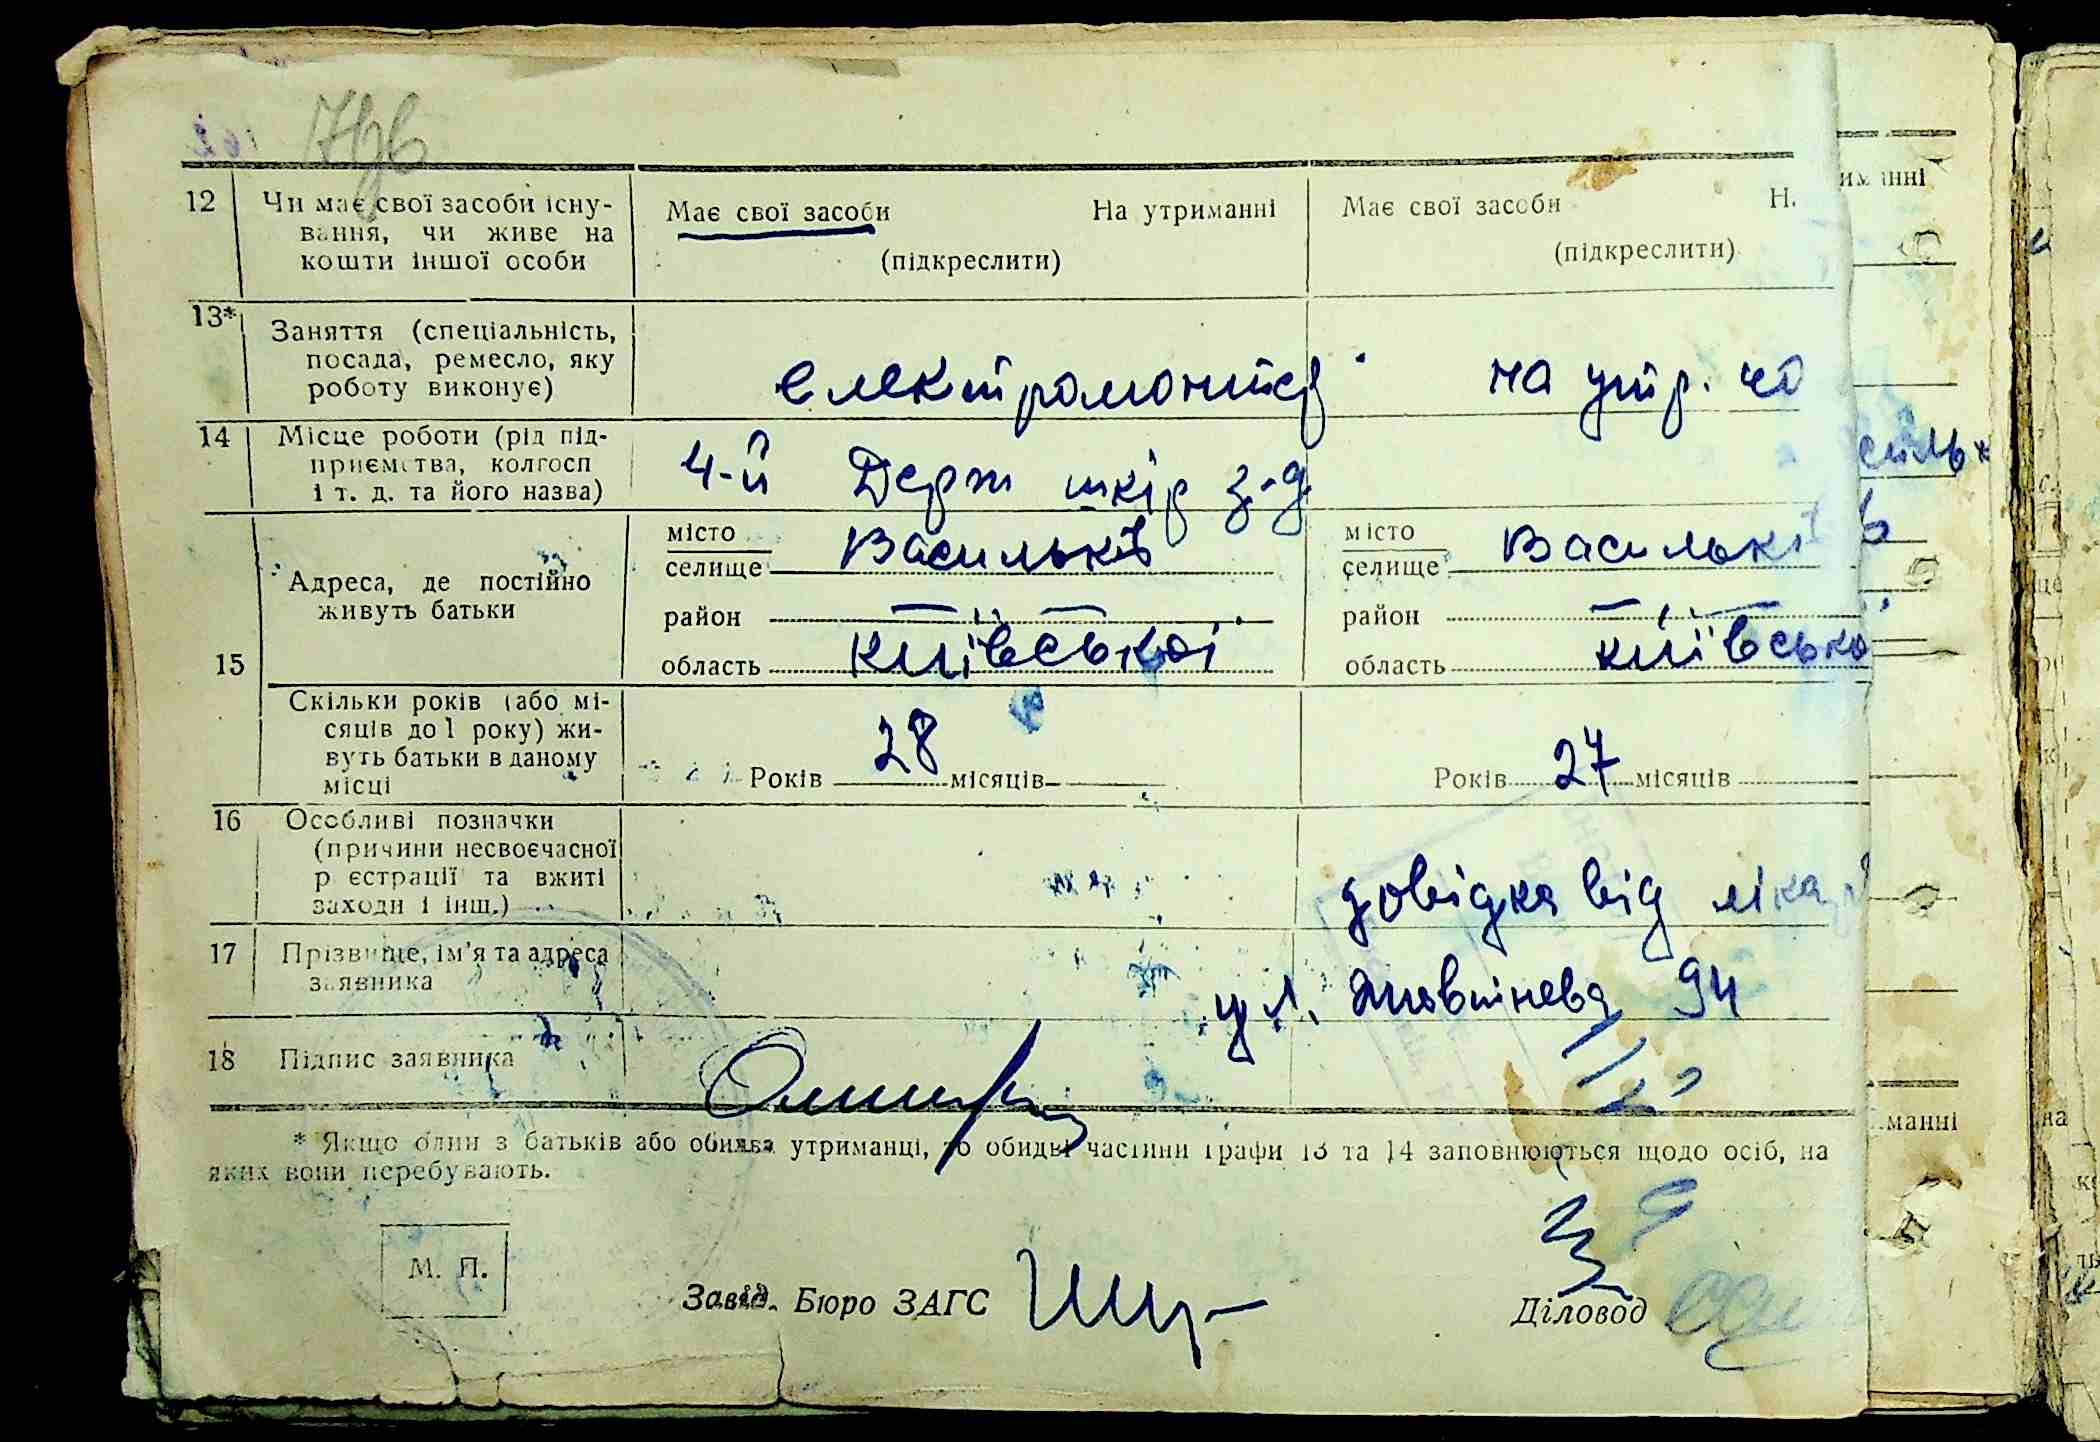 12 Чи має свої засоби існу- Має свої засоби На утриманні Має свої засоби Н.
вання, чи живе на
кошти іншої особи (підкреслити) (підкреслити)
13* Заняття (спеціальність,
посада, ремесло, яку
роботу виконує) електромонтер на утр. чо
14 Місце роботи (рід під-
приємства, колгосп 4-й Держ шкір з-д
і т. д. та його назва)
15 Адреса, де постійно
живуть батьки
місто Васильків місто Васильків
селище селище
район — — район — —
область Київської область Київсько
Скільки років (або мі-
сяців до 1 року) жи-
вуть батьки в даному Років 28 місяців Років 27 місяців
місці
16 Особливі позначки
(причини несвоєчасної
реєстрації та вжиті довідка від ліка
заходи і інш.)
17 Прізвище, ім'я та адреса
заявника ул. Жовтнева 94
18 Підпис заявника
* Якщо один з батьків або обидва утриманці, то обидві частини графи 13 та 14 заповнюються щодо осіб, на
яких вони перебувають.
М. П.
Завід. Бюро ЗАГС Діловод